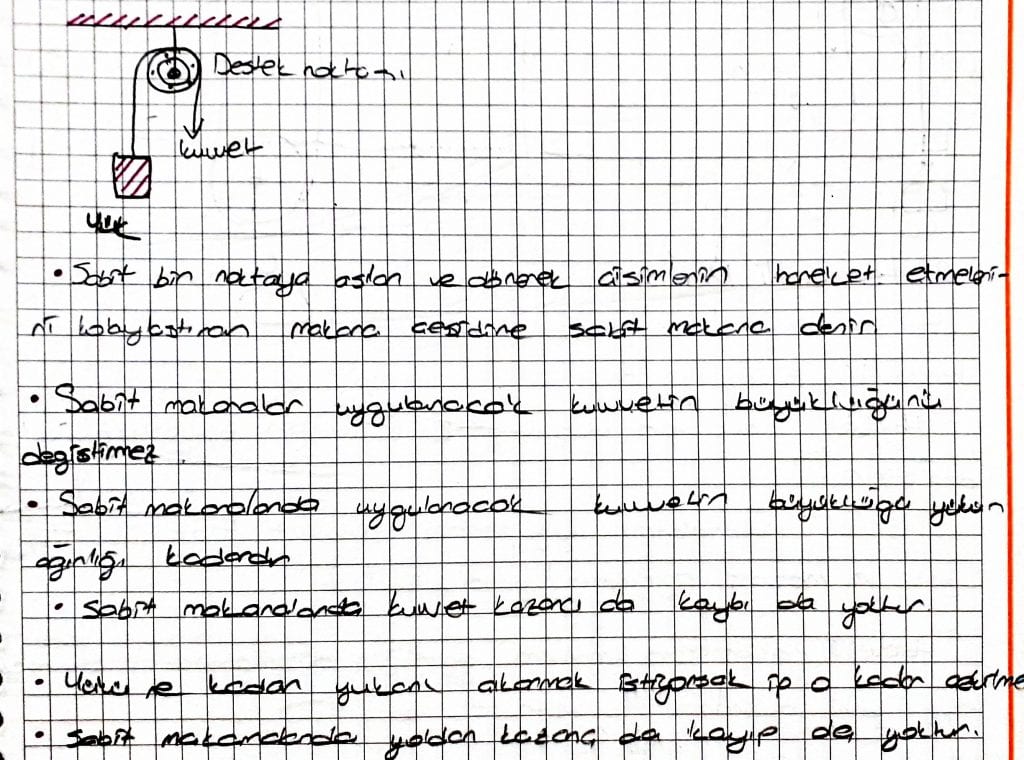 Destek noktası
kuvvet
Yük
• Sabit bir noktaya asılan ve dönerek cisimlerin hareket etmeleri-
ni kolaylaştıran makara çeşidine sabit makara denir
• Sabit makaralar uygulanacak kuvvetin büyüklüğünü
değiştirmez.
• Sabit makaralarda uygulanacak kuvvetin büyüklüğü yükün
ağırlığı kadardır
• Sabit makaralarda kuvvet kazancı da kaybı da yoktur
• Yükü ne kadar yukarı çıkarmak istiyorsak ip o kadar
• Sabit makaralarda yoldan kazanç da kayıp da yoktur.